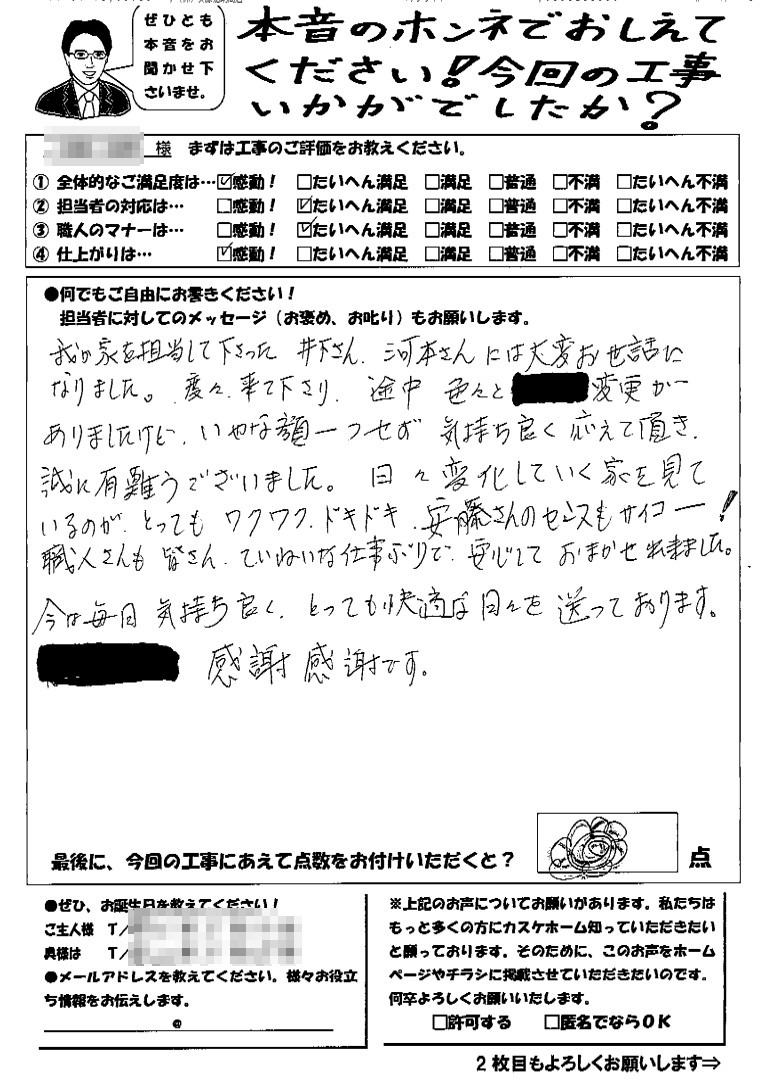 ぜひとも
本音をお
聞かせ下
さいませ。
本音のホンネでおしえて
ください!今回の工事
いかがでしたか?
様 まずは工事のご評価をお教えください。
① 全体的なご満足度は… ☑感動! □たいへん満足 □満足 □普通 □不満 □たいへん不満
② 担当者の対応は… □感動! ☑たいへん満足 □満足 □普通 □不満 □たいへん不満
③ 職人のマナーは… □感動! ☑たいへん満足 □満足 □普通 □不満 □たいへん不満
④ 仕上がりは… ☑感動! □たいへん満足 □満足 □普通 □不満 □たいへん不満
●何でもご自由にお書きください!
担当者に対してのメッセージ(お褒め、お叱り)もお願いします。
我が家を担当して下さった 井下さん、河本さんには大変お世話に
なりました。度々、来て下さり、途中 色々と 変更が
ありましたけど、いやな顔一つせず 気持ち良く応えて頂き、
誠に有難うございました。日々変化していく家を見て
いるのが、とっても ワクワク、ドキドキ、安藤さんのセンスもサイコー!
職人さんも 皆さん、ていねいな仕事ぶりで、安心して おまかせ出来ました。
今は毎日 気持ち良く、とっても快適な日々を送っております。
感謝 感謝です。
最後に、今回の工事にあえて点数をお付けいただくと?
点
●ぜひ、お誕生日を教えてください!
ご主人様 T/
奥様は T/
●メールアドレスを教えてください。様々お役立
ち情報をお伝えします。
@
※上記のお声についてお願いがあります。私たちは
もっと多くの方にカスケホーム知っていただきたい
と願っております。そのために、このお声をホーム
ページやチラシに掲載させていただきたいのです。
何卒よろしくお願いいたします。
□許可する □匿名でならOK
2枚目もよろしくお願いします⇒